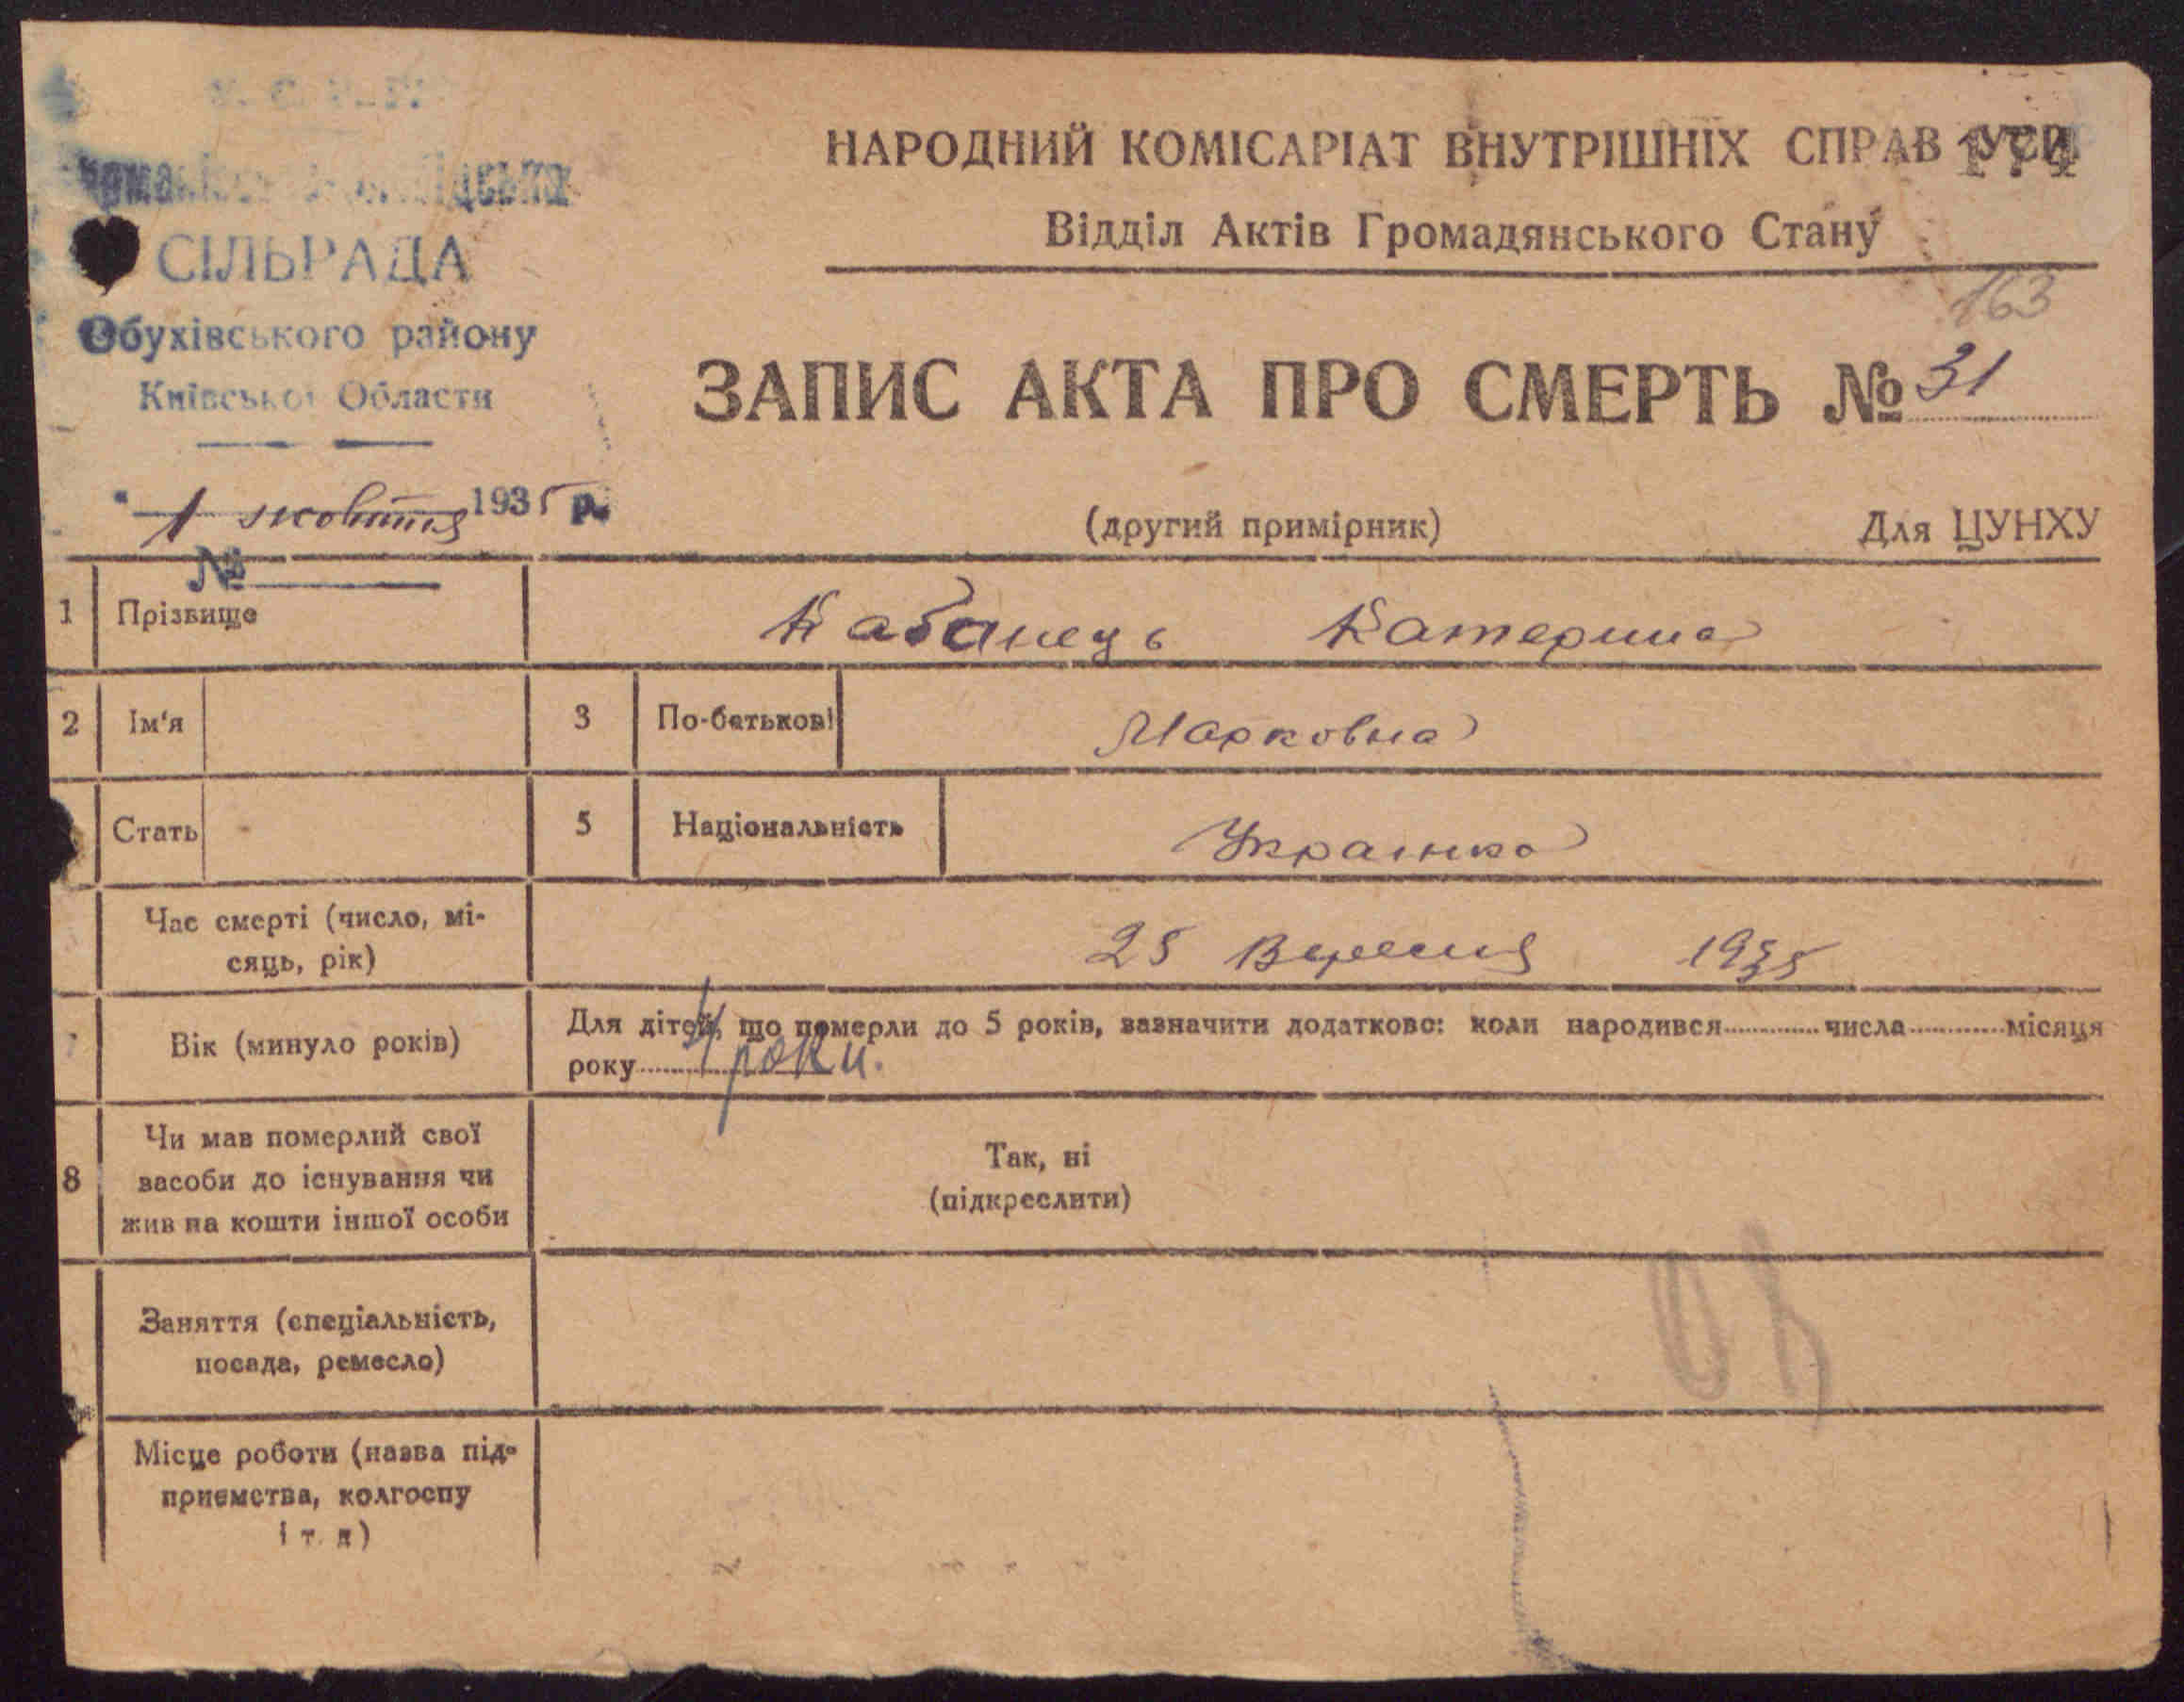 СІЛЬРАДА
Обухівського району
Київської Области
1 жовтня 1935 р.
№
НАРОДНИЙ КОМІСАРІАТ ВНУТРІШНІХ СПРАВ УСРР
174
Відділ Актів Громадянського Стану
163
ЗАПИС АКТА ПРО СМЕРТЬ № 31
(другий примірник)
Для ЦУНХУ
1 Прізвище Кабанець Катерина
2 Ім'я 3 По-батькові Марковна
Стать 5 Національність Украінка
Час смерті (число, мі-
сяць, рік) 25 Вересня 1935
Вік (минуло років)
Для дітей, що померли до 5 років, зазначити додатково: коли народився числа місяця
року
4 роки.
8 Чи мав померлий свої
засоби до існування чи
жив на кошти іншої особи
Так, ні
(підкреслити)
Заняття (спеціальність,
посада, ремесло)
Місце роботи (назва під-
приємства, колгоспу
і т. д)